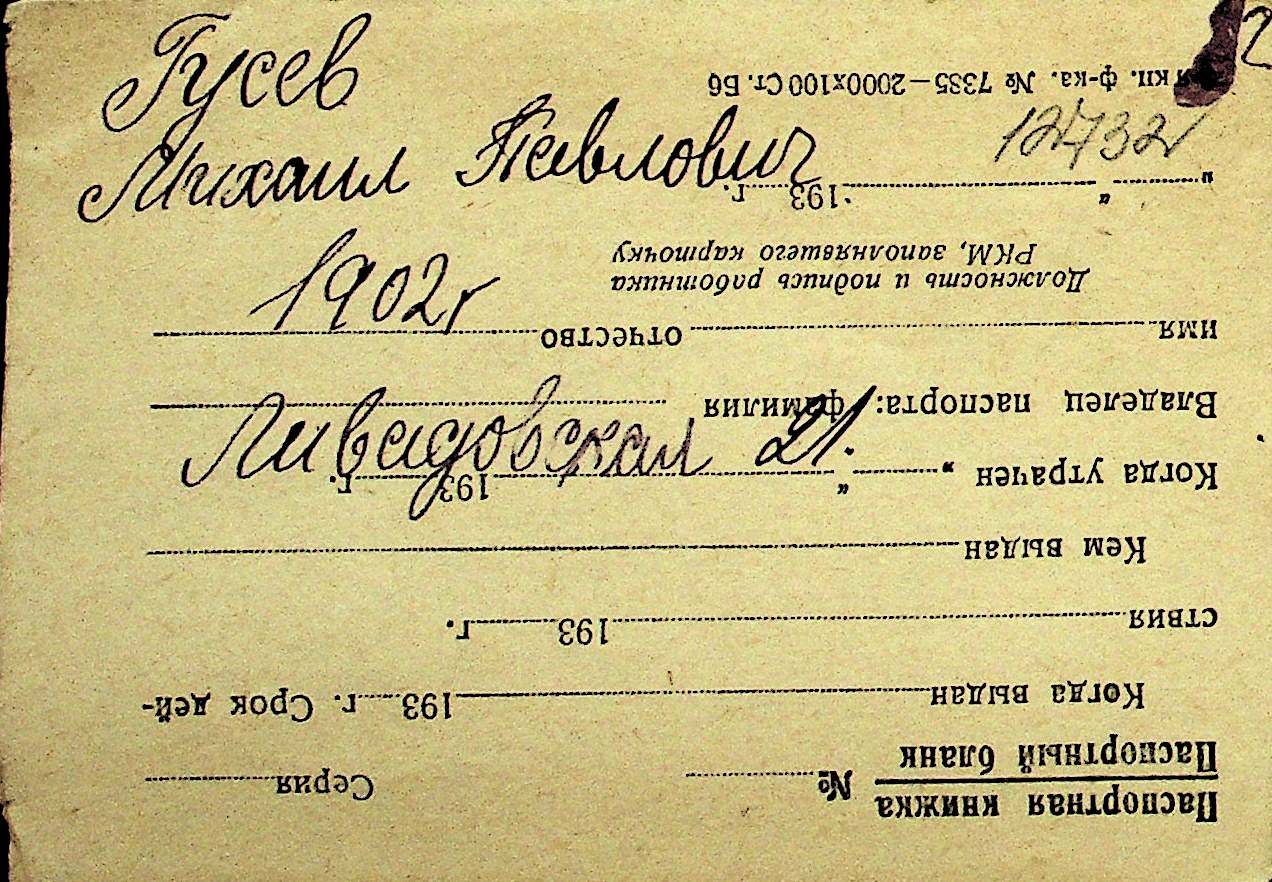 Гусев
Михаил Павлович
1902 г
Ливадовская 21.
12732
2
Паспортная книжка
Паспортный бланк
№ Серия
Когда выдан 193 г. Срок дей-
ствия 193 г.
Кем выдан
Когда утрачен „ “ 193 г.
Владелец паспорта: фамилия
имя отчество
Должность и подпись работника
РКМ, заполнявшего карточку
„ “ 193 г.
кп. ф-ка. № 7385—2000х100 Ст. Бб